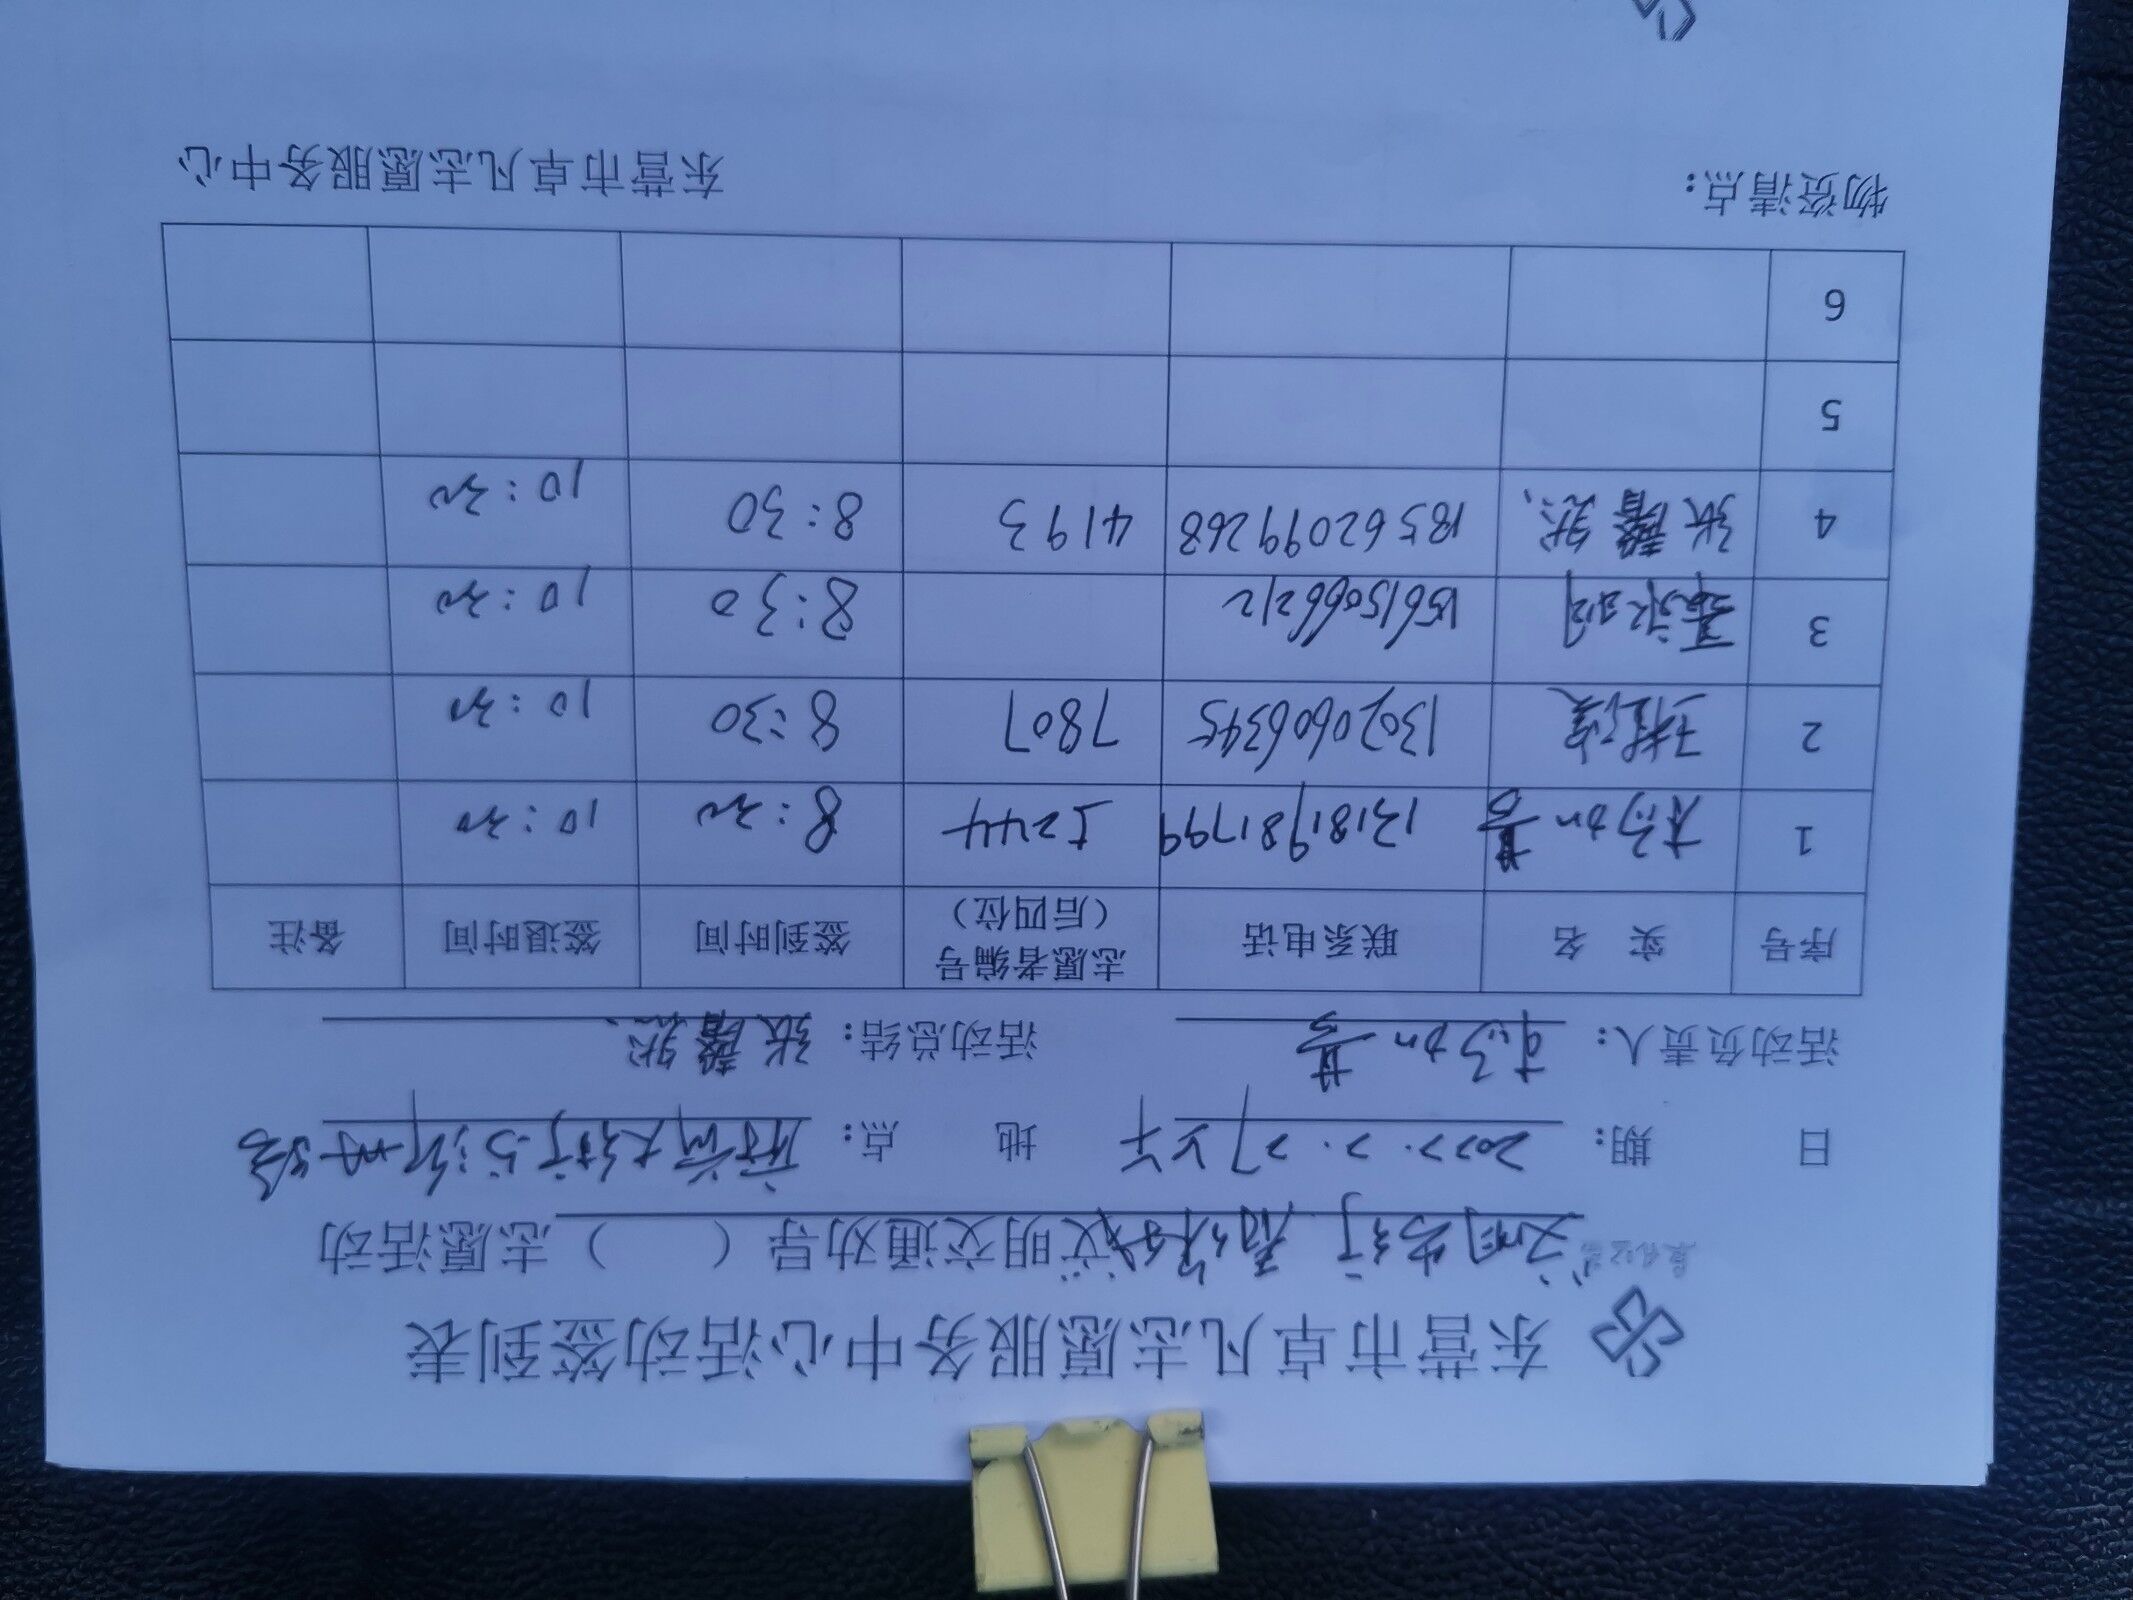 东营市卓凡志愿服务中心活动签到表
文明出行 有你有我 文明交通劝导（ ）志愿活动
日 期： 2022.2.27上午 地 点： 府前大街与沂州路
活动负责人： 杨加 活动总结： 张馨然
序号 实 名 联系电话 志愿者编号（后四位） 签到时间 签退时间 备注
1 杨加 13181981799 5244 8:30 10:30
2 13020606345 7807 8:30 10:30
3 15615066212 8:30 10:30
4 张馨然 18562099268 4193 8:30 10:30
5
6
物资清点： 东营市卓凡志愿服务中心